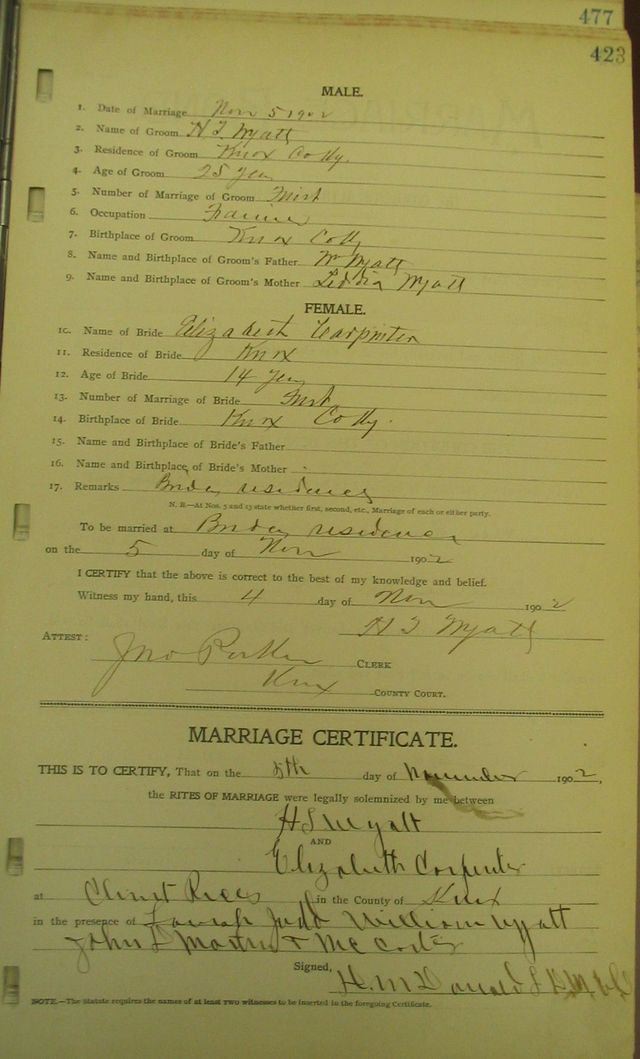 477
423
MALE.
1. Date of Marriage Nov 5 1902
2. Name of Groom H. T. Wyatt
3. Residence of Groom Knox Co Ky.
4. Age of Groom 25 years
5. Number of Marriage of Groom First
6. Occupation Farmer
7. Birthplace of Groom Knox Co Ky
8. Name and Birthplace of Groom's Father Wm Wyatt
9. Name and Birthplace of Groom's Mother Liddia Wyatt
FEMALE.
10. Name of Bride Elizabeth Carpinter
11. Residence of Bride Knox
12. Age of Bride 14 years
13. Number of Marriage of Bride First
14. Birthplace of Bride Knox Co Ky.
15. Name and Birthplace of Bride's Father
16. Name and Birthplace of Bride's Mother
17. Remarks Brides residence
N. B.—At Nos. 5 and 13 state whether first, second, etc., Marriage of each or either party.
To be married at Brides residence
on the 5 day of Nov 1902
I CERTIFY that the above is correct to the best of my knowledge and belief.
Witness my hand, this 4 day of Nov 1902
H T Wyatt
ATTEST:
Jno Parker CLERK
Knox COUNTY COURT.
MARRIAGE CERTIFICATE.
THIS IS TO CERTIFY, That on the 5th day of November 1902,
the RITES OF MARRIAGE were legally solemnized by me between
Wyatt
AND
Elizabeth Carpenter
at Clint in the County of Knox
in the presence of William Wyatt
John
Signed, H. M
NOTE.—The Statute requires the names of at least TWO witnesses to be inserted in the foregoing Certificate.